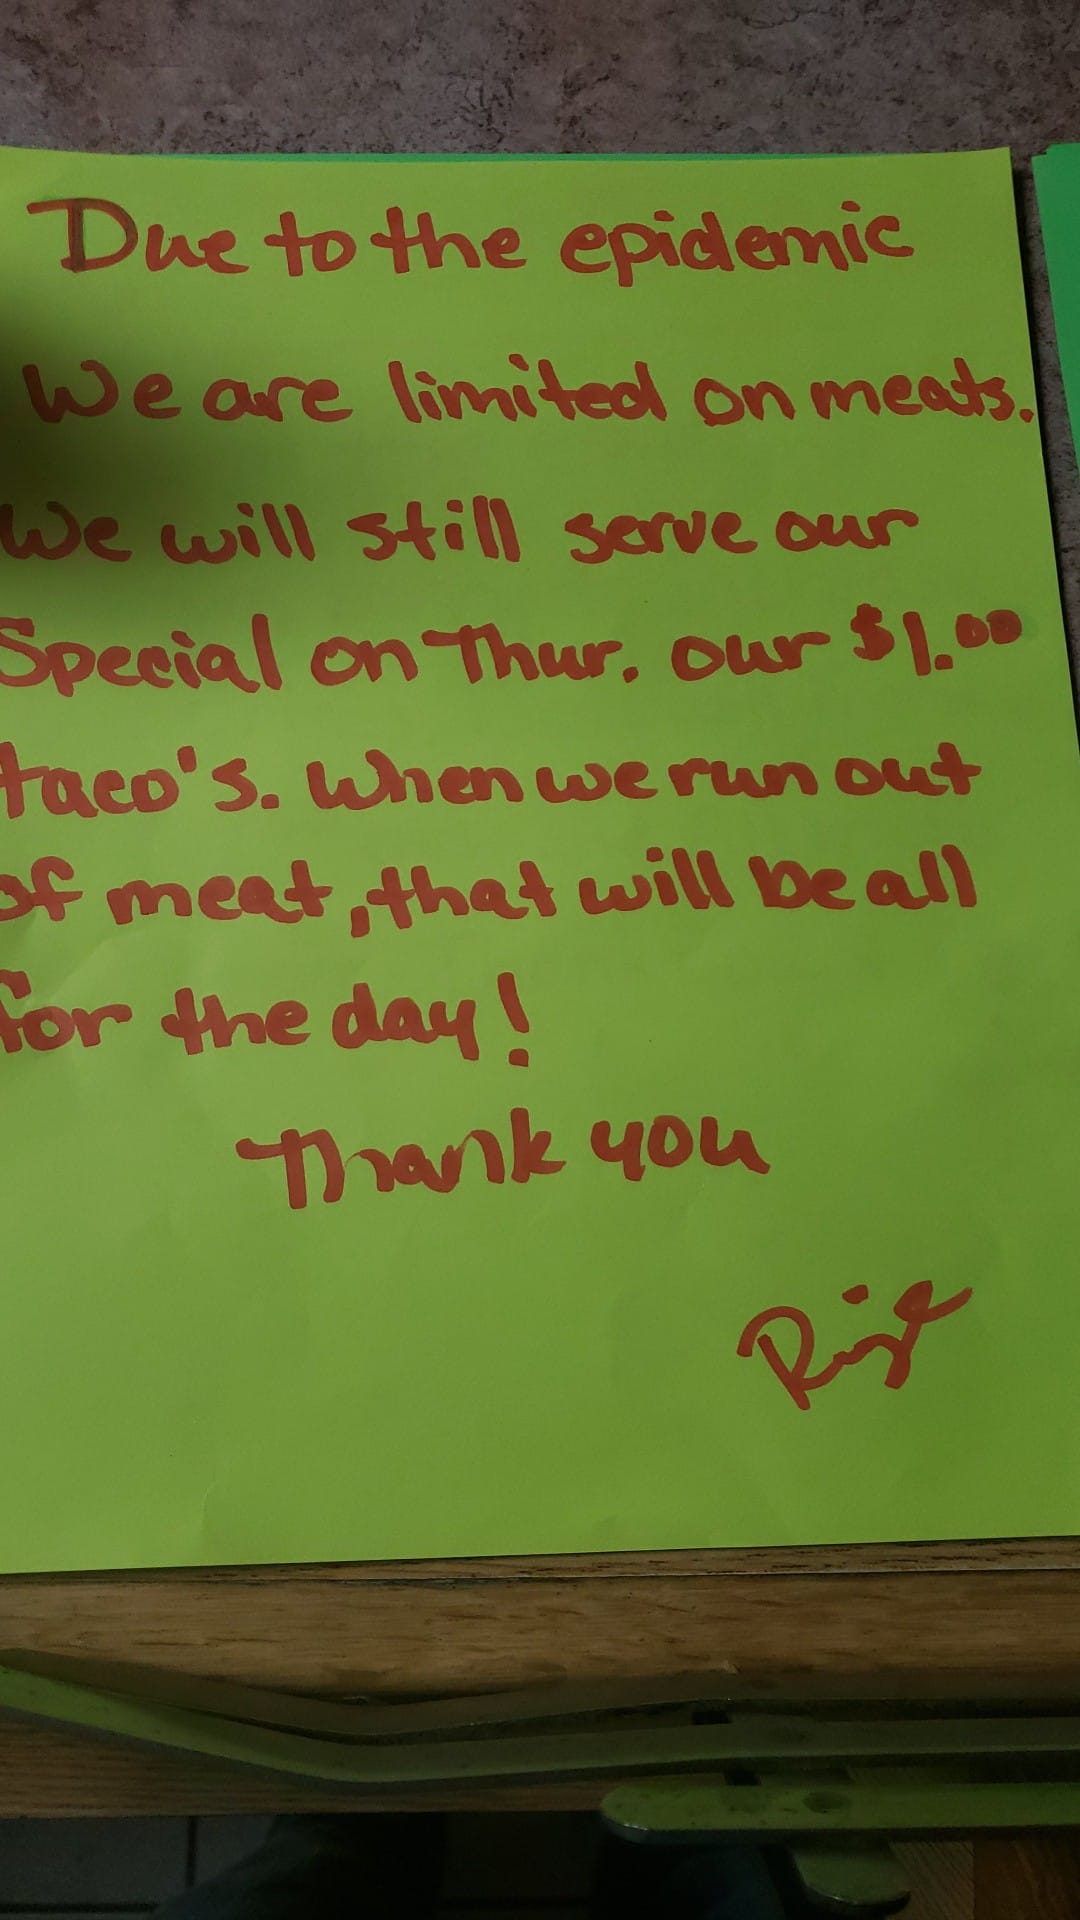 Due to the epidemic
We are limited on meats.
We will still serve our
Special on Thur. our $1.00
taco's. When we run out
of meat, that will be all
for the day!
Thank you